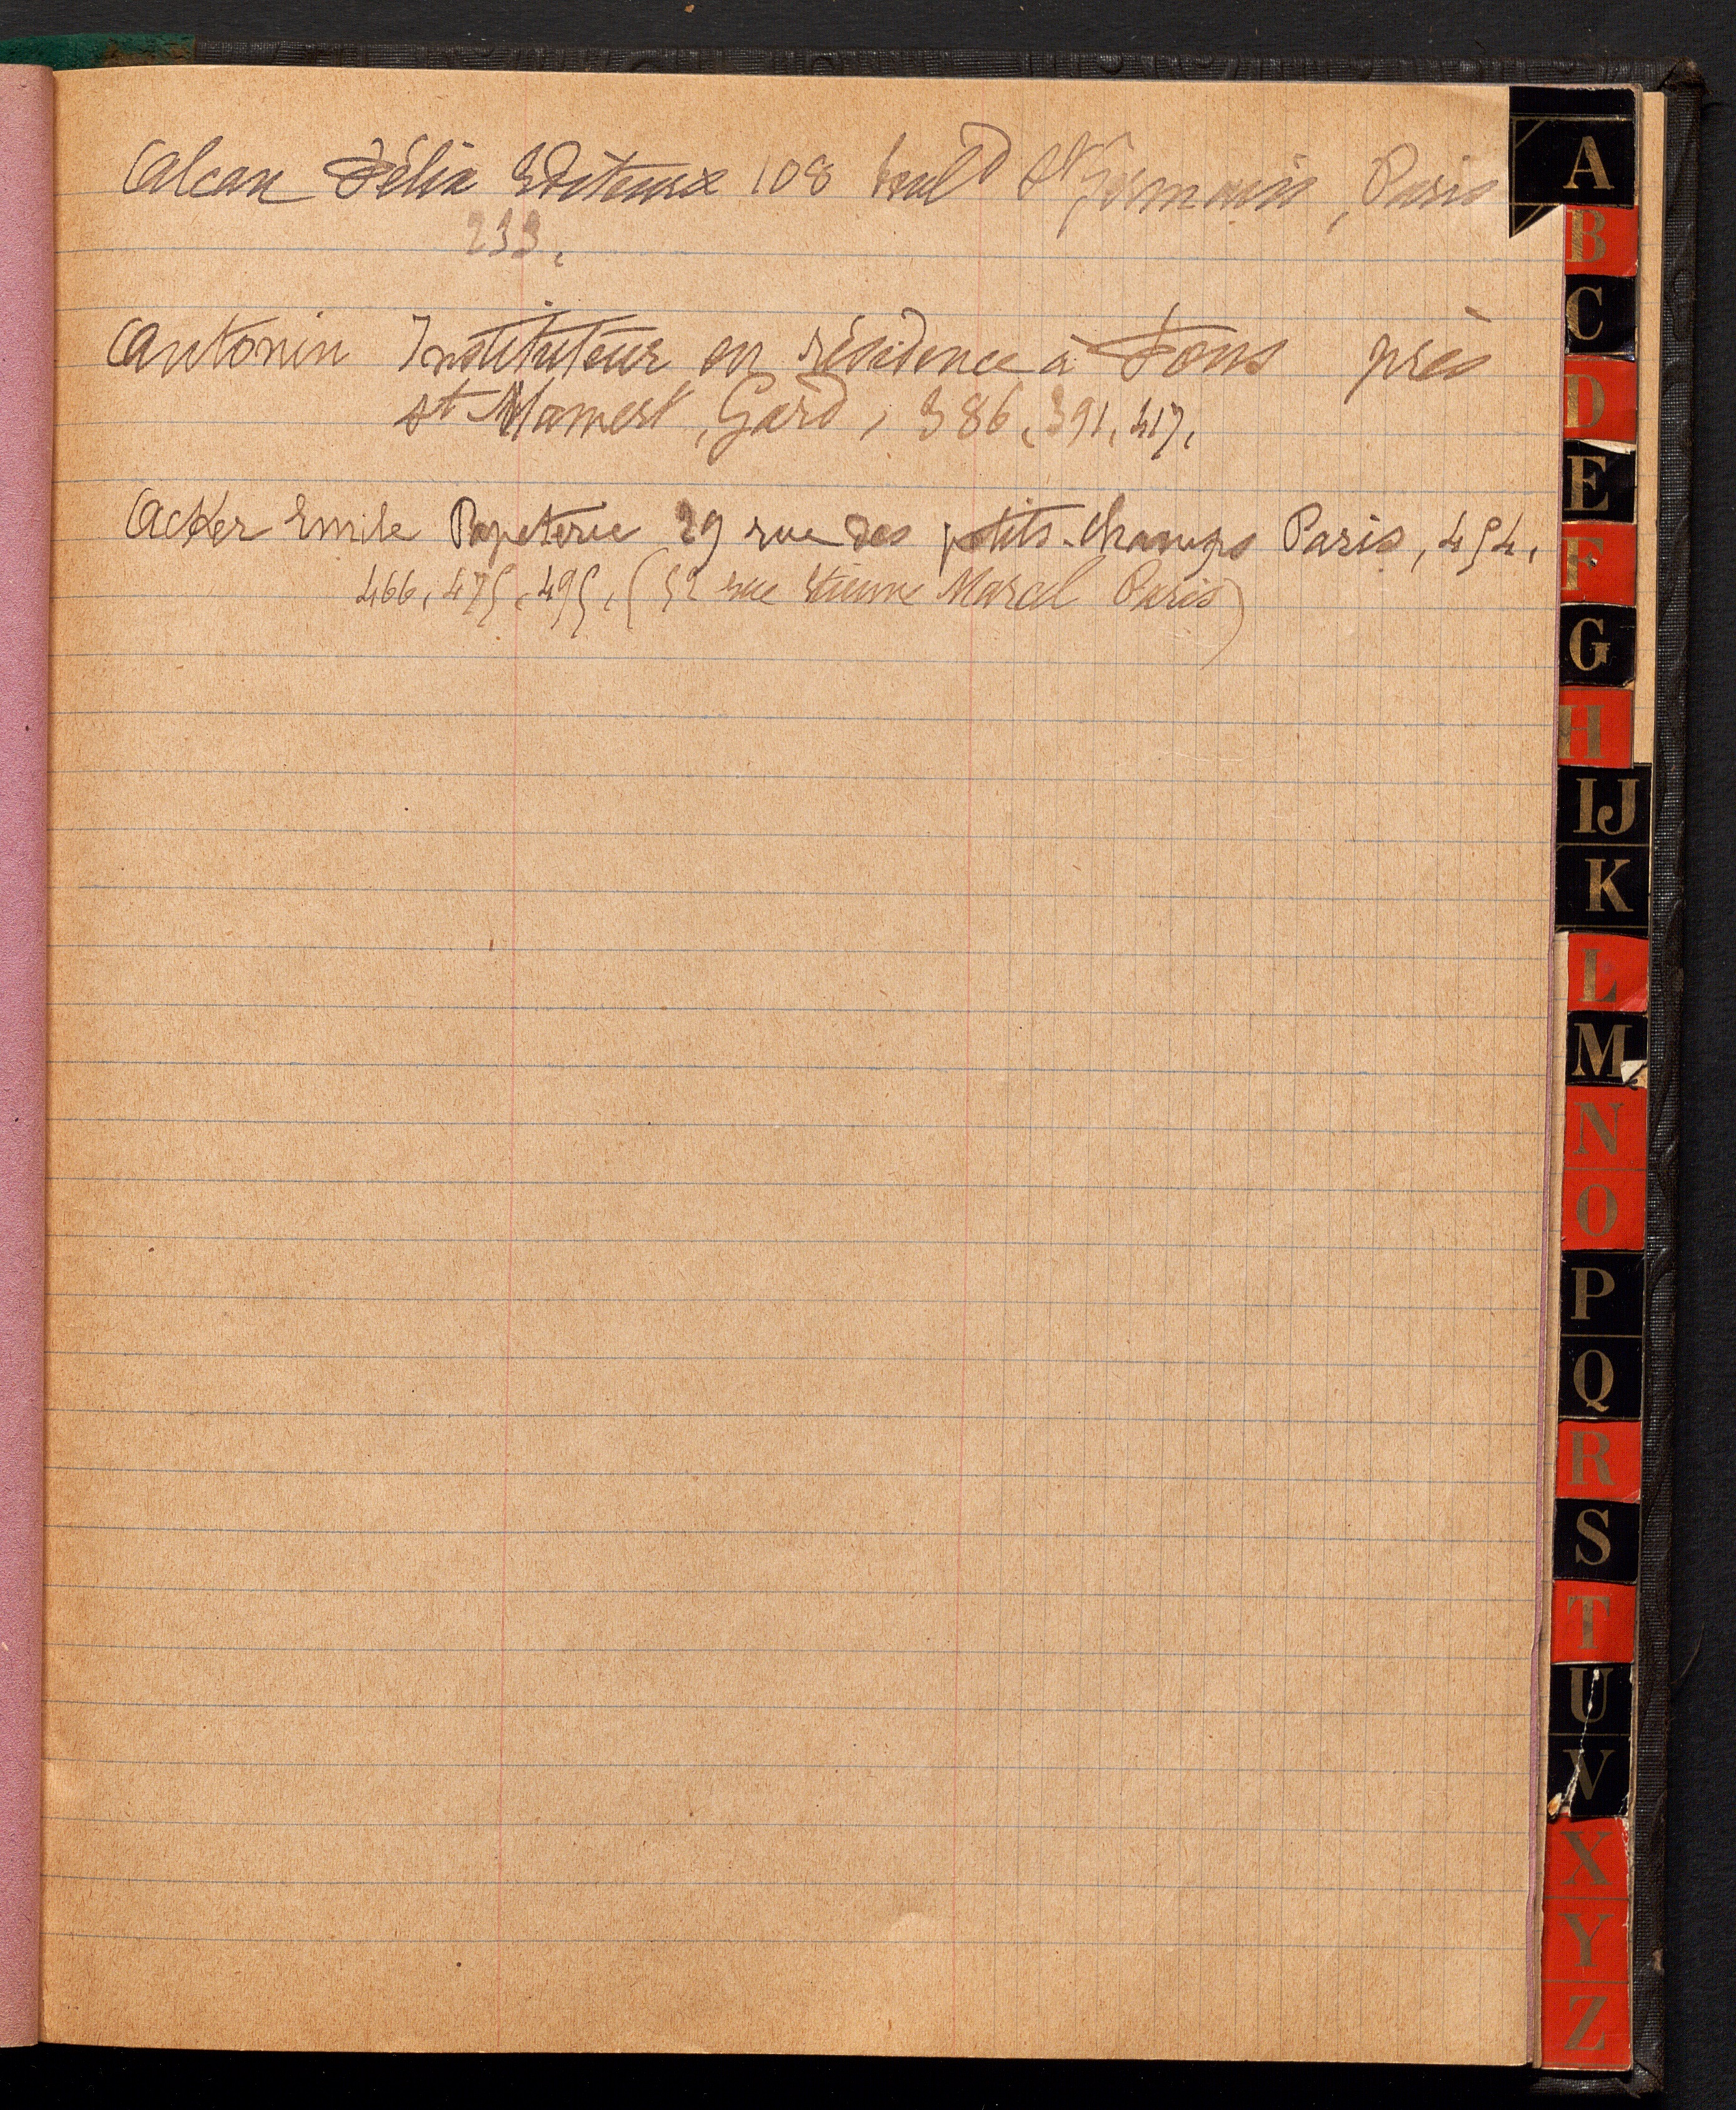 Alcan Félix Editeurx 108 boulᵈ Sᵗ Germain, Paris
233.
Antonin Instituteur en résidence à Fons près
st Mamert, Gard, 386, 391, 417,
Acker Emile Papeterie 29 rue des petits-champs Paris, 454,
466, 475, 495, (52 rue Etienne Marcel Paris)
A
B
C
D
E
F
G
H
IJ
K
L
M
N
O
P
Q
R
S
T
U
V
X
Y
Z